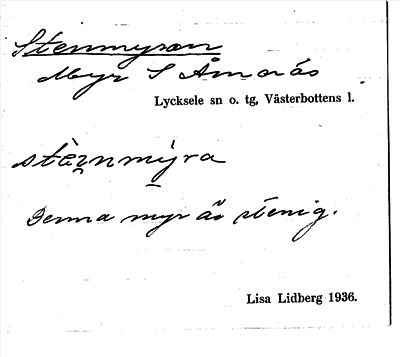 Stenmyran
Myr S Åmnäs
Lycksele sn o. tg, Västerbottens l.
stèn̥mýra
Denna myr är stenig.
Lisa Lidberg 1936.